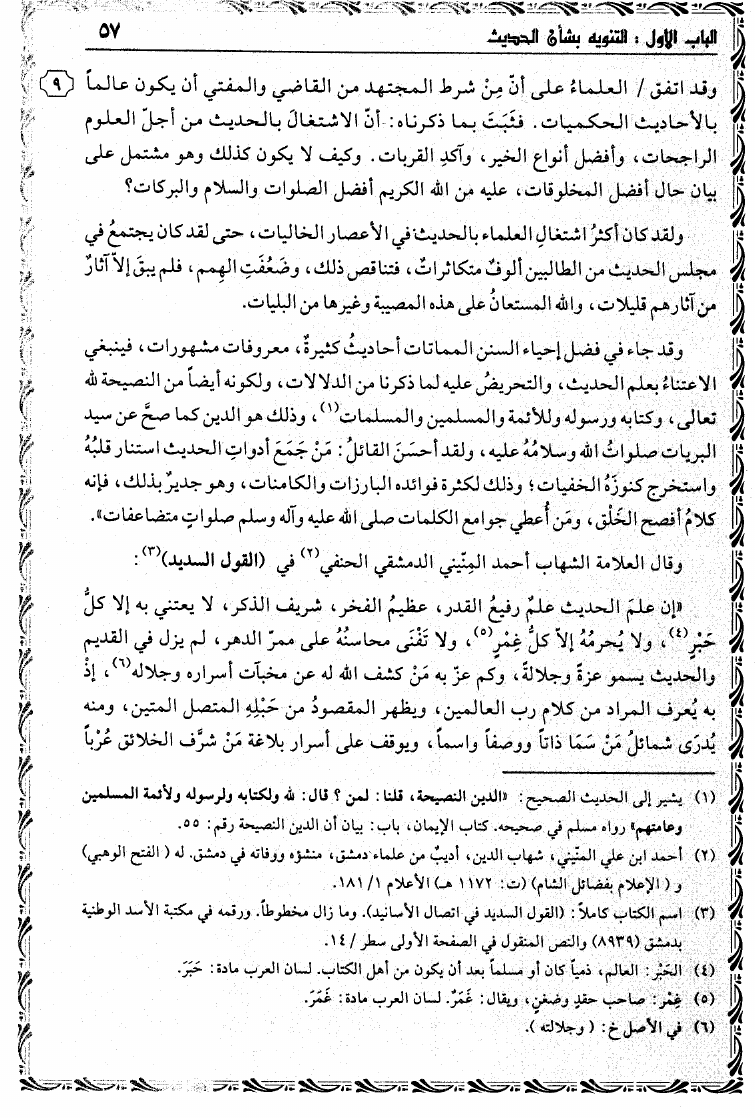 الباب الأول : التنويه بشأن الحديث ٥٧
وقد اتفق / العلماءُ على أنّ مِنْ شرط المجتهد من القاضي والمفتي أن يكون عالماً ٩
بالأحاديث الحكميات. فثَبَتَ بما ذكرناه: أنّ الاشتغالَ بالحديث من أجلّ العلوم
الراجحات، وأفضل أنواع الخير، وآكدِ القربات. وكيف لا يكون كذلك وهو مشتمل على
بيان حال أفضل المخلوقات، عليه من الله الكريم أفضل الصلوات والسلام والبركات؟
ولقد كان أكثرُ اشتغالِ العلماء بالحديث في الأعصار الخاليات، حتى لقد كان يجتمعُ في
مجلس الحديث من الطالبين ألوفٌ متكاثراتٌ، فتناقص ذلك، وضَعُفَتِ الهِمم، فلم يبقَ إلاّ آثارٌ
من آثارهم قليلات، والله المستعانُ على هذه المصيبة وغيرها من البليات.
وقد جاء في فضل إحياء السنن المماتات أحاديثُ كثيرةٌ، معروفات مشهورات، فينبغي
الاعتناءُ بعلم الحديث، والتحريضُ عليه لما ذكرنا من الدلالات، ولكونه أيضاً من النصيحة لله
تعالى، وكتابه ورسوله وللأئمة والمسلمين والمسلمات(١)، وذلك هو الدين كما صحَّ عن سيد
البريات صلواتُ الله وسلامُهُ عليه، ولقد أحسَنَ القائلُ: مَنْ جَمَعَ أدواتِ الحديث استنار قلبُهُ
واستخرج كنوزَهُ الخفيات؛ وذلك لكثرة فوائده البارزات والكامنات، وهو جديرٌ بذلك، فإنه
كلامُ أفصح الخَلْق، ومَن أُعطي جوامع الكلمات صلى الله عليه وآله وسلم صلواتٍ متضاعفات».
وقال العلامة الشهاب أحمد المِنّيني الدمشقي الحنفي(٢) في (القول السديد)(٣):
«إن علمَ الحديث علمٌ رفيعُ القدر، عظيمُ الفخر، شريف الذكر، لا يعتني به إلا كلُّ
حَبْرٍ(٤)، ولا يُحرمُهُ إلاّ كلُّ غِمْرٍ(٥)، ولا تَفْنَى محاسنُهُ على ممرّ الدهر، لم يزل في القديم
والحديث يسمو عزةً وجلالةً، وكم عزّ به مَنْ كشف الله له عن مخبآت أسراره وجلاله(٦)، إذْ
به يُعرف المراد من كلام رب العالمين، ويظهر المقصودُ من حَبْلِهِ المتصل المتين، ومنه
يُدرَى شمائلُ مَنْ سَمَا ذاتاً ووصفاً واسماً، ويوقف على أسرار بلاغة مَنْ شرَّف الخلائق عُرْباً
(١) يشير إلى الحديث الصحيح: «الدين النصيحة، قلنا: لمن ؟ قال: لله ولكتابه ولرسوله ولأئمة المسلمين
وعامتهم» رواه مسلم في صحيحه. كتاب الإيمان، باب: بيان أن الدين النصيحة رقم: ٥٥.
(٢) أحمد ابن علي المنّيني، شهاب الدين، أديبٌ من علماء دمشق، منشؤه ووفاته في دمشق. له ( الفتح الوهبي)
و ( الإعلام بفضائل الشام) (ت: ١١٧٢ هـ) الأعلام ١/ ١٨١.
(٣) اسم الكتاب كاملاً: (القول السديد في اتصال الأسانيد). وما زال مخطوطاً. ورقمه في مكتبة الأسد الوطنية
بدمشق (٨٩٣٩) والنص المنقول في الصفحة الأولى سطر /١٤.
(٤) الحَبْر: العالم، ذمياً كان أو مسلماً بعد أن يكون من أهل الكتاب. لسان العرب مادة: حَبَرَ.
(٥) غِمْر: صاحب حقدٍ وضغنٍ، ويقال: غَمَرٌ. لسان العرب مادة: غَمَرَ.
(٦) في الأصل خ: ( وجلالته ).